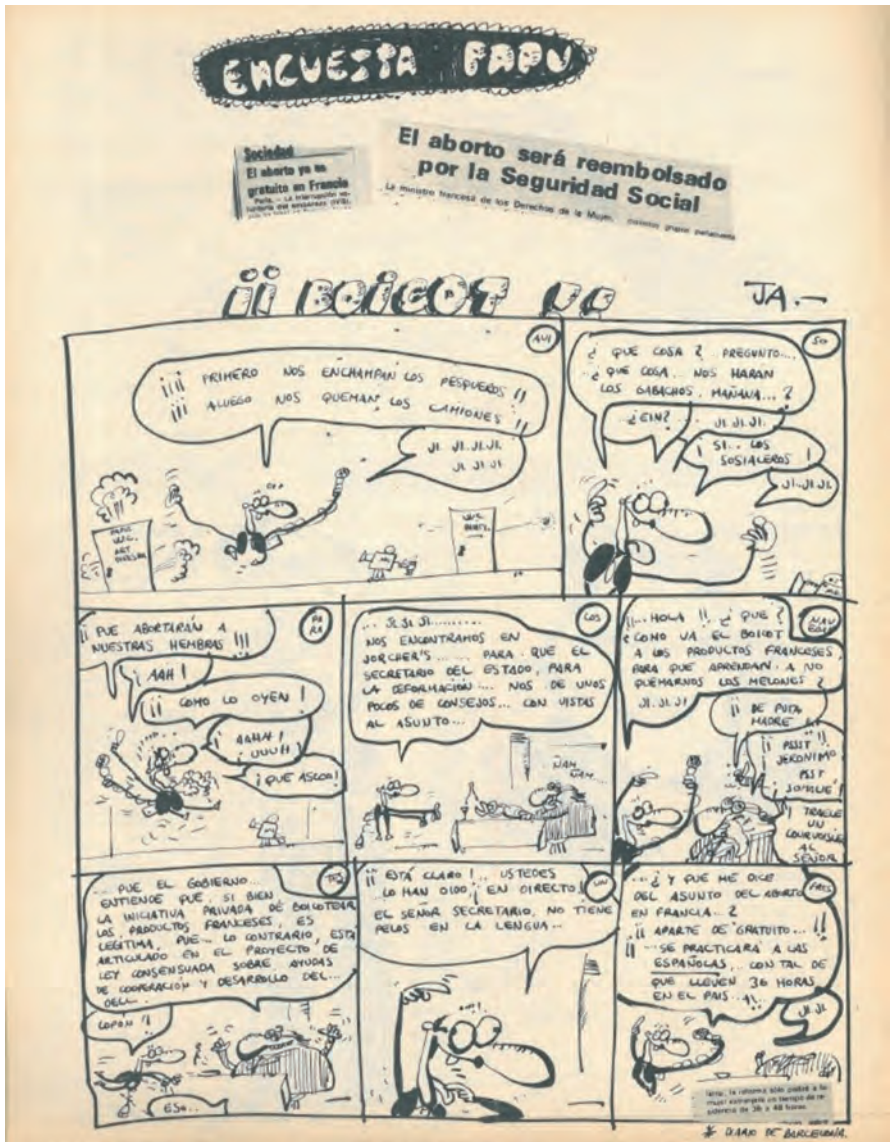 ENCUESTA PAPU
Sociedad
El aborto ya es
gratuito en Francia
París. – La interrupción vo-
luntaria del embarazo (IVE),
El aborto será reembolsado
por la Seguridad Social
La ministro francesa de los Derechos de la Mujer,
¡¡ BOICOT YA
JA.-
AUI
¡¡¡¡ PRIMERO NOS ENCHAMPAN LOS PESQUEROS !!
¡¡¡ ALUEGO NOS QUEMAN LOS CAMIONES !!
JI. JI. JI. JI.
JI. JI. JI
SO
¿ QUE COSA ? PREGUNTO....
¿ QUE COSA, NOS HARAN
LOS GABACHOS, MAÑANA...?
¿EIN?
JI. JI. JI.
¡ SI.. LOS
SOSIALEROS !
JI..JI.JI.
PA
RA
¡¡ PUE ABORTARÁN A
NUESTRAS HEMBRAS !!!
¡ AAH !
¡¡ COMO LO OYEN !
¡ AAHH !
¡ UUUH !
¡ QUE ASCOO!
LOS
... JI. JI. JI..........
NOS ENCONTRAMOS EN
JORCHER'S....... PARA QUE EL
SECRETARIO DEL ESTADO, PARA
LA DEFORMACIÓN.... NOS DE UNOS
POCOS DE CONSEJOS... CON VISTAS
AL ASUNTO...
ÑAM
ÑAM...
¡¡... HOLA !! ¿ QUE ?
¿ COMO VA EL BOICOT
A LOS PRODUCTOS FRANCESES,
PARA QUE APRENDAN A NO
QUEMARNOS LOS MELONES ?
JI. JI. JI
¡¡ DE PUTA
MADRE
¡ PSST !!
JERONIMO
PST
¡ TRAELE
UN
COURVOISIER
AL
SEÑOR
... PUE EL GOBIERNO...
ENTIENDE QUE, SI BIEN
LA INICIATIVA PRIVADA DE BOICOTEAR
LOS PRODUCTOS FRANCESES, ES
LEGÍTIMA, PUE... LO CONTRARIO, ESTÁ
ARTICULADO EN EL PROYECTO DE
LEY CONSENSUADA SOBRE AYUDAS
DE COOPERACIÓN Y DESARROLLO DEL...
DELL..
COPÓN !!
ESO..
UN
¡¡ ESTÁ CLARO !.. USTEDES
LO HAN OIDO ¡ EN DIRECTO !
EL SEÑOR SECRETARIO, NO TIENE
PELOS EN LA LENGUA...
PAIS
...¿ Y QUE ME DICE
DEL ASUNTO DEL ABORTO
EN FRANCIA..?
¡¡ APARTE DE GRATUITO... !!
¡¡ ... SE PRACTICARÁ A LAS
ESPAÑOLAS,.. CON TAL DE
QUE LLEVEN 36 HORAS
EN EL PAIS...!!
JI. JI
lante, la reforma sólo pedirá a la
mujer extranjera un tiempo de re-
sidencia de 36 a 48 horas.
* DIARIO DE BARCELONA